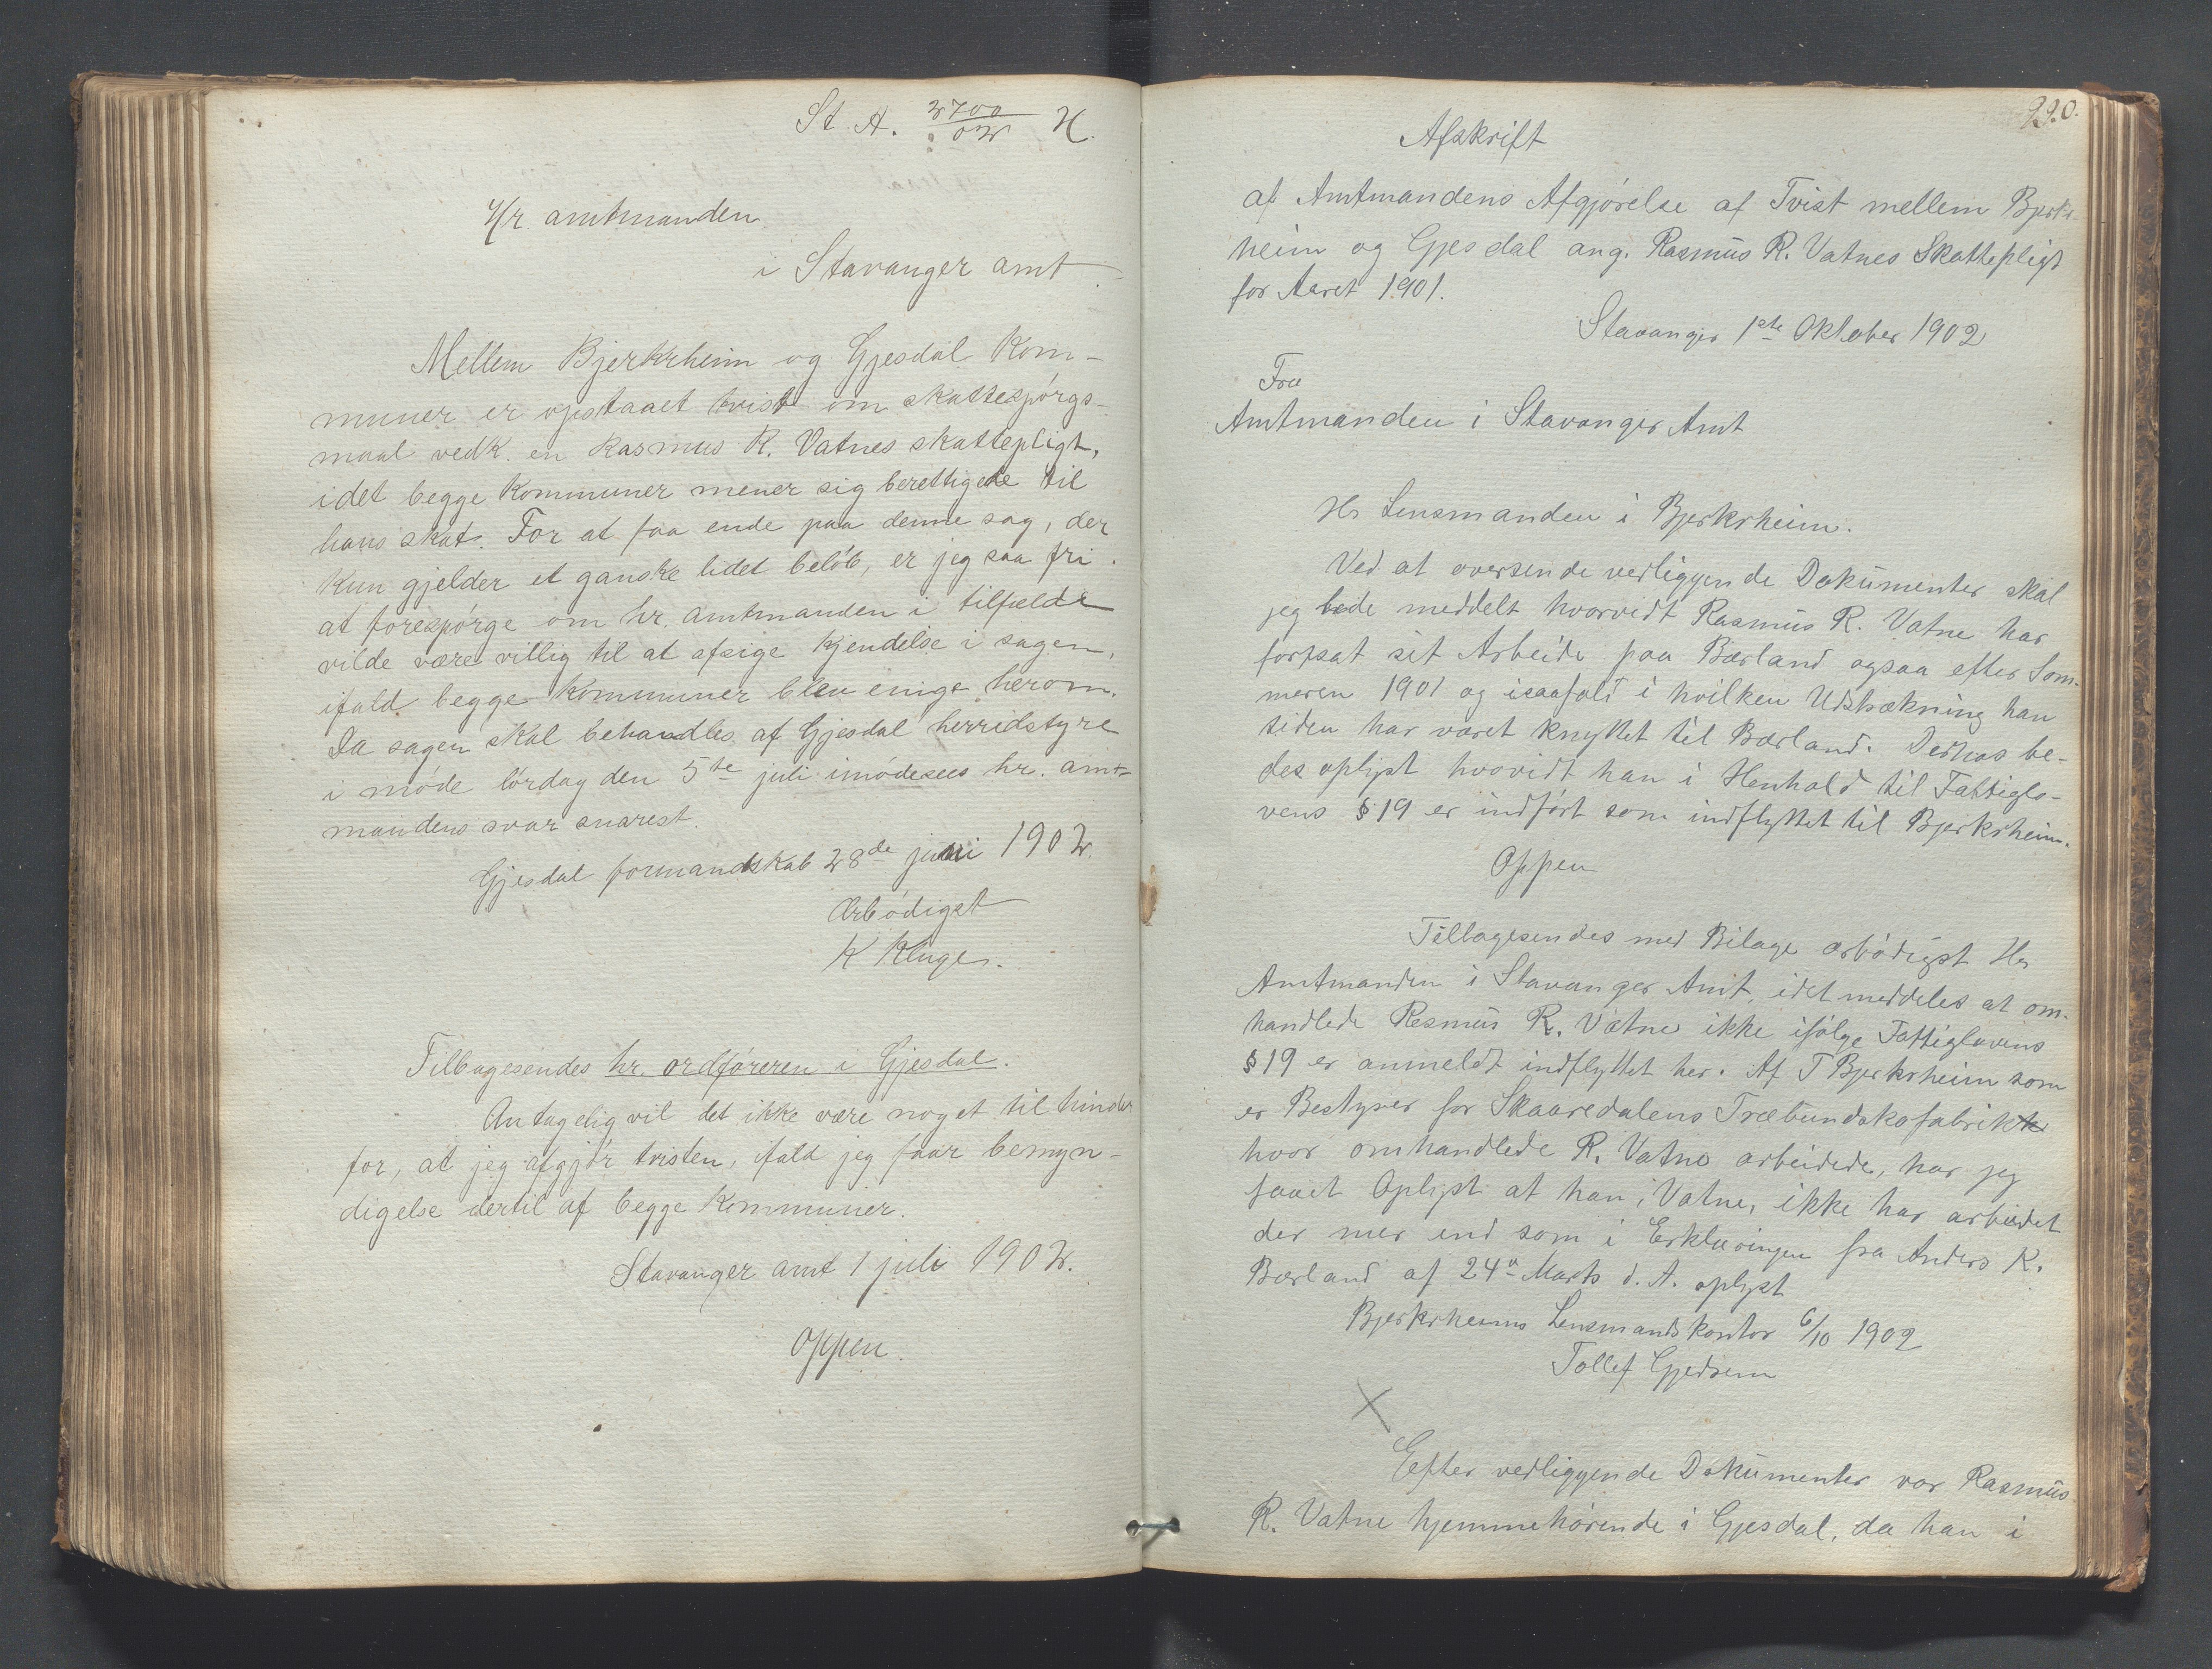 St. A. 2700/02 H.
Hr. amtmanden
i Stavanger amt.
Mellem Bjerkrheim og Gjesdal kom-
muner er opstaaet tvist om skattespørgs-
maal vedk. en Rasmus R. Vatnes skattepligt,
idet begge kommuner mener sig berettigede til
hans skat. For at faa ende paa denne sag, der
kun gjelder et ganske lidet beløb, er jeg saa fri
at forespørge om hr. amtmanden i tilfælde
vilde være villig til at afsige kjendelse i sagen,
ifald begge kommuner blev enige herom.
Da sagen skal behandles af Gjesdal herridstyre
i møde lørdag den 5te juli imødesees hr. amt-
mandens svar snarest.
Gjesdal formandskab 28de juni 1902.
Ærbødigst
K Kluge.
Tilbagesendes hr. ordføreren i Gjesdal.
Antagelig vil det ikke være noget til hinder
for, at jeg afgjør tvisten, ifald jeg faar bemyn-
digelse dertil af begge kommuner.
Stavanger amt 1 juli 1902.
Oppen.
220.
Afskrift
af Amtmandens Afgjørelse af Tvist mellem Bjerkr-
heim og Gjesdal ang. Rasmus R. Vatnes Skattepligt
for Aaret 1901.
Stavanger 1ste Oktober 1902
Fra
Amtmanden i Stavanger Amt
Hr Lensmanden i Bjerkrheim.
Ved at oversende vedliggende Dokumenter skal
jeg bede meddelt hvorvidt Rasmus R. Vatne har
fortsat sit Arbeide paa Bærland ogsaa efter Som-
meren 1901 og isaafald i hvilken Udstrækning han
siden har været knyttet til Bærland. Derhos be-
des oplyst hvovidt han i Henhold til Fattiglo-
vens § 19 er indført som indflyttet til Bjerkrheim.
Oppen
Tilbagesendes med Bilage ærbødigst Hr
Amtmanden i Stavanger Amt, idet meddeles at om-
handlede Rasmus R. Vatne ikke ifølge Fattiglovens
§ 19 er anmeldt indflyttet her. Af T Bjerkrheim som
er Bestyrer for Skaaredalens Træbundskofabrik
hvor omhandlede R. Vatne arbeidede, har jeg
faaet Oplyst at han, Vatne, ikke har arbeidet
der mer end som i Erklæringen fra Anders K.
Bærland af 24de Marts d. A. oplyst
Bjerkrheims Lensmandskontor 6/10 1902
Tollef Gjedrem
X
Efter vedliggende Dokumenter var Rasmus
R. Vatne hjemmehørende i Gjesdal, da han i